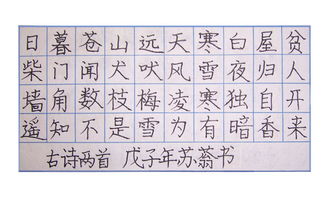 日暮苍山远天寒白屋贫
柴门闻犬吠风雪夜归人
墙角数枝梅凌寒独自开
遥知不是雪为有暗香来
古诗两首 戊子年苏蓊书